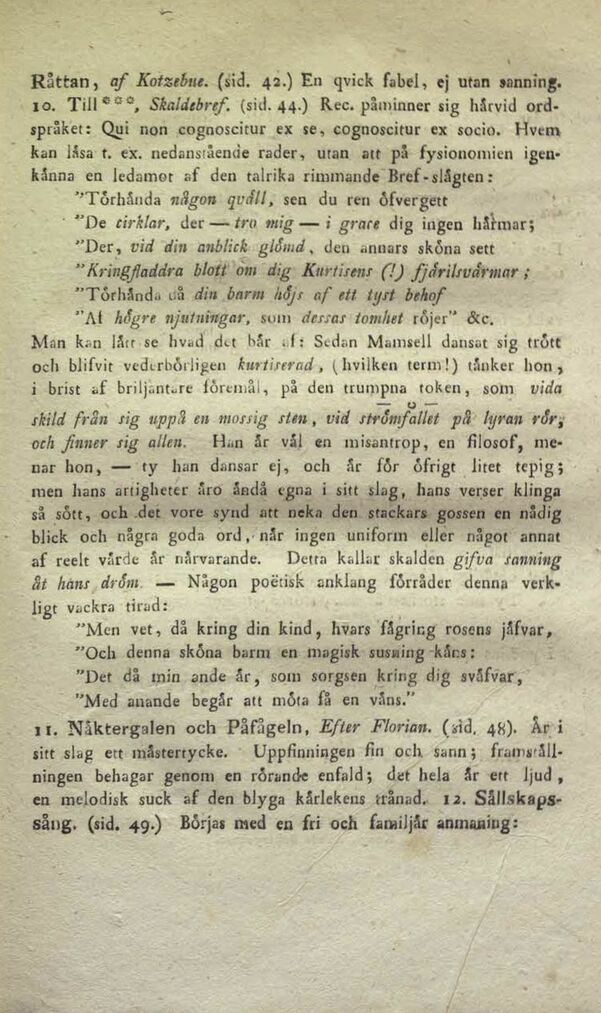 Råttan, af Kotzebue. (sid. 42.) En qvick fabel, ej utan sanning.
10. Till ***, Skaldebref. (sid. 44.) Rec. påminner sig hårvid ord-
språket: Qui non cognoscitur ex se, cognoscitur ex socio. Hvem
kan låsa t. ex. nedanstående rader, utan att på fysionomien igen-
kånna en ledamot af den talrika rimmande Bref-slågten:
"Tórhånda någon qvåll, sen du ren ófvergett
"De cirklar, der — tro mig — i grace dig ingen hårmar;
"Der, vid din anblick glómd, den annars skóna sett
"Kringfladdra blott om dig Kurtisens (!) fjårilsvårmar;
"Tórhånda då din barm hójs af ett tyst behof
"Af hógre njutningar, som dessas tomhet rójer" &c.
Man kan lått se hvad det hår af: Sedan Mamsell dansat sig trótt
och blifvit vederbórligen kurtiserad, (hvilken term!) tånker hon,
i brist af briljantare fóremål, på den trumpna token, som vida
skild från sig uppå en mossig sten, vid strómfallet på lyran rór,
och finner sig allen. Han år vål en misantrop, en filosof, me-
nar hon, — ty han dansar ej, och år fór ófrigt litet tepig;
men hans artigheter åro åndå egna i sitt slag, hans verser klinga
så sótt, och det vore synd att neka den stackars gossen en nådig
blick och några goda ord, når ingen uniform eller något annat
af reelt vårde år nårvarande. Detta kallar skalden gifva sanning
åt hans dróm. — Någon poëtisk anklang fórråder denna verk-
ligt vackra tirad:
"Men vet, då kring din kind, hvars fågring rosens jåfvar,
"Och denna skóna barm en magisk susning kåns:
"Det då min ande år, som sorgsen kring dig svåfvar,
"Med anande begår att móta få en våns."
11. Nåktergalen och Påfågeln, Efter Florian. (sid. 48). År i
sitt slag ett måstertycke. Uppfinningen fin och sann; framståll-
ningen behagar genom en rórande enfald; det hela år ett ljud,
en melodisk suck af den blyga kårlekens trånad. 12. Sållskaps-
sång. (sid. 49.) Bórjas med en fri och familjår anmaning: